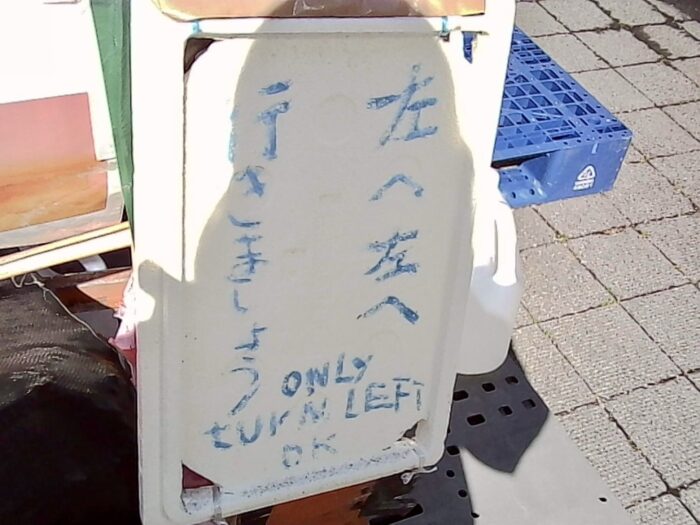 左へ左へ
行きましょう
ONLY
tURN LEFT
OK